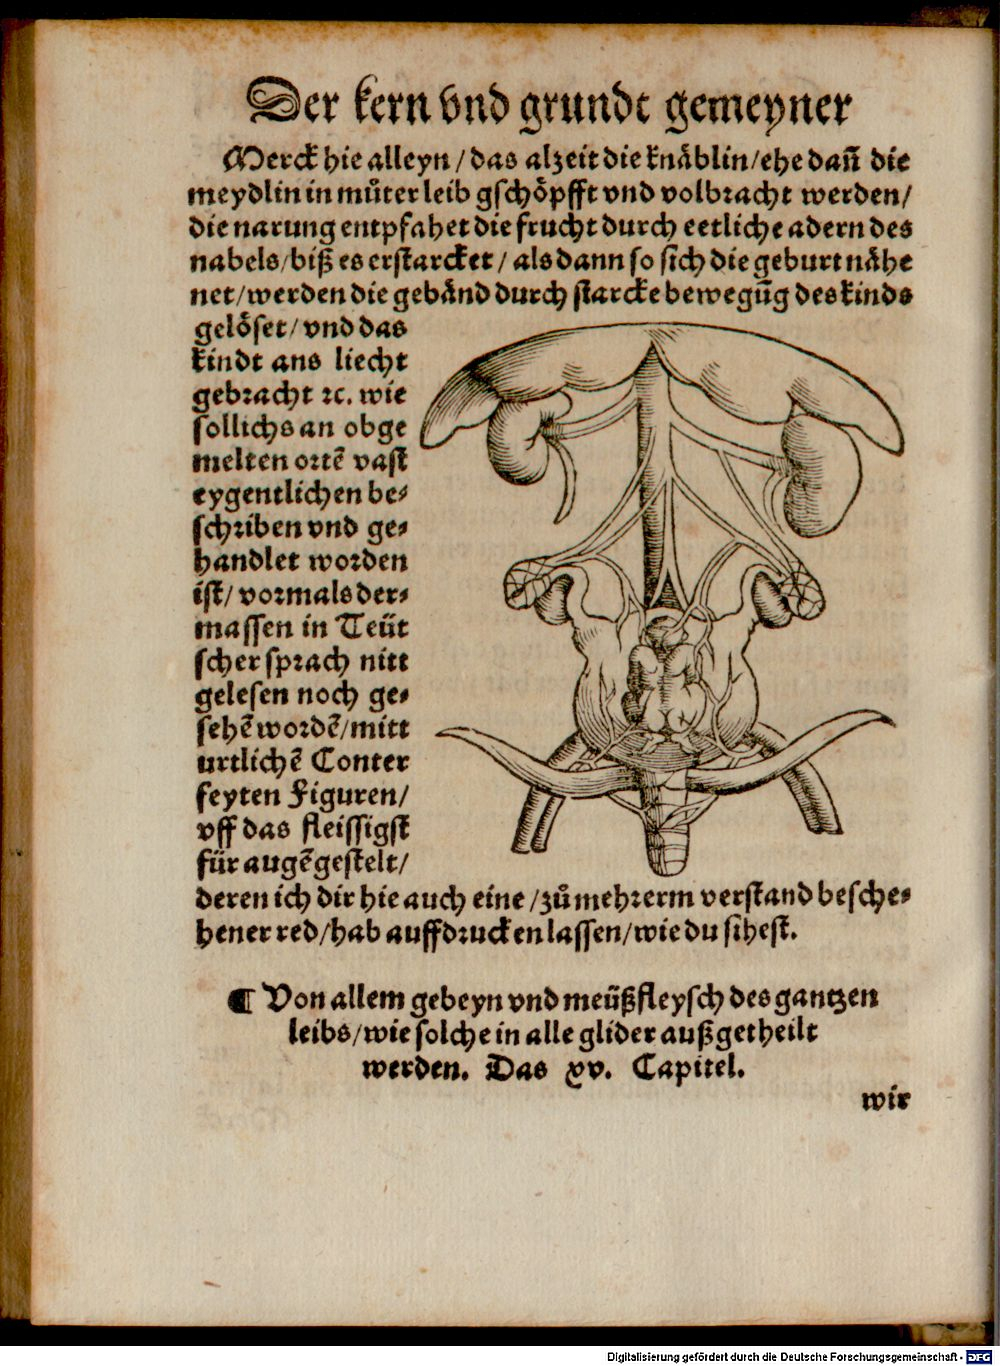 Der kern vnd grundt gemeyner
Merck hie alleyn / das alzeit die knäblin / ehe dañ die
meydlin in můter leib gschöpfft vnd volbracht werden /
die narung entpfahet die frucht durch eetliche adern des
nabels / biß es erstarcket / als dann so sich die geburt nähe
net / werden die gebänd durch starcke bewegūg des kinds
gelöset / vnd das
kindt ans liecht
gebracht ꝛc. wie
sollichs an obge
melten ortē vast
eygentlichen be⸗
schriben vnd ge⸗
handlet worden
ist / vormals der⸗
massen in Teüt
scher sprach nitt
gelesen noch ge⸗
sehē wordē / mitt
urtlichē Conter
feyten Figuren /
vff das fleissigst
für augē gestelt /
deren ich dir hie auch eine / zů mehrerm verstand besche⸗
hener red / hab auffdrucken lassen / wie du sihest.
¶ Von allem gebeyn vnd meüßfleysch des gantzen
leibs / wie solche in alle glider außgetheilt
werden. Das xv. Capitel.
wir
Digitalisierung gefördert durch die Deutsche Forschungsgemeinschaft - DFG